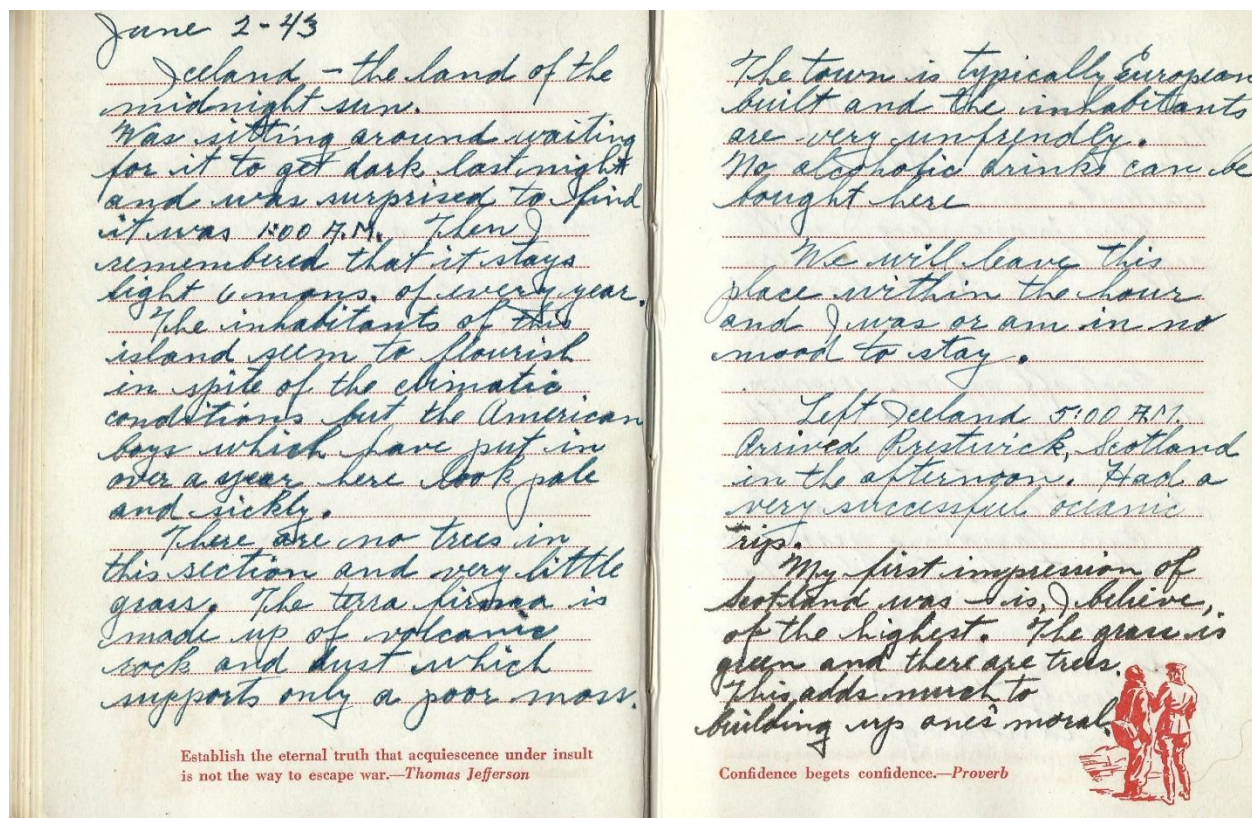 June 2-43
Iceland - the land of the
midnight sun.
Was sitting around waiting
for it to get dark last night
and was surprised to find
it was 1:00 A.M. Then I
remembered that it stays
light 6 mons. of every year.
The inhabitants of this
island seem to flourish
in spite of the climatic
conditions but the American
boys which have put in
over a year here look pale
and sickly.
There are no trees in
this section and very little
grass. The terra firma is
made up of volcanic
rock and dust which
supports only a poor moss.
Establish the eternal truth that acquiescence under insult
is not the way to escape war.—Thomas Jefferson
The town is typically European
built and the inhabitants
are very unfrendly.
No alcoholic drinks can be
bought here
We will leave this
place within the hour
and I was or am in no
mood to stay.
Left Iceland 5:00 A.M.
Arrived Prestwick, Scotland
in the afternoon. Had a
very successful oceanic
trip.
My first impression of
Scotland was - is, I believe,
of the highest. The grass is
green and there are trees.
This adds much to
building up one's moral.
Confidence begets confidence.—Proverb